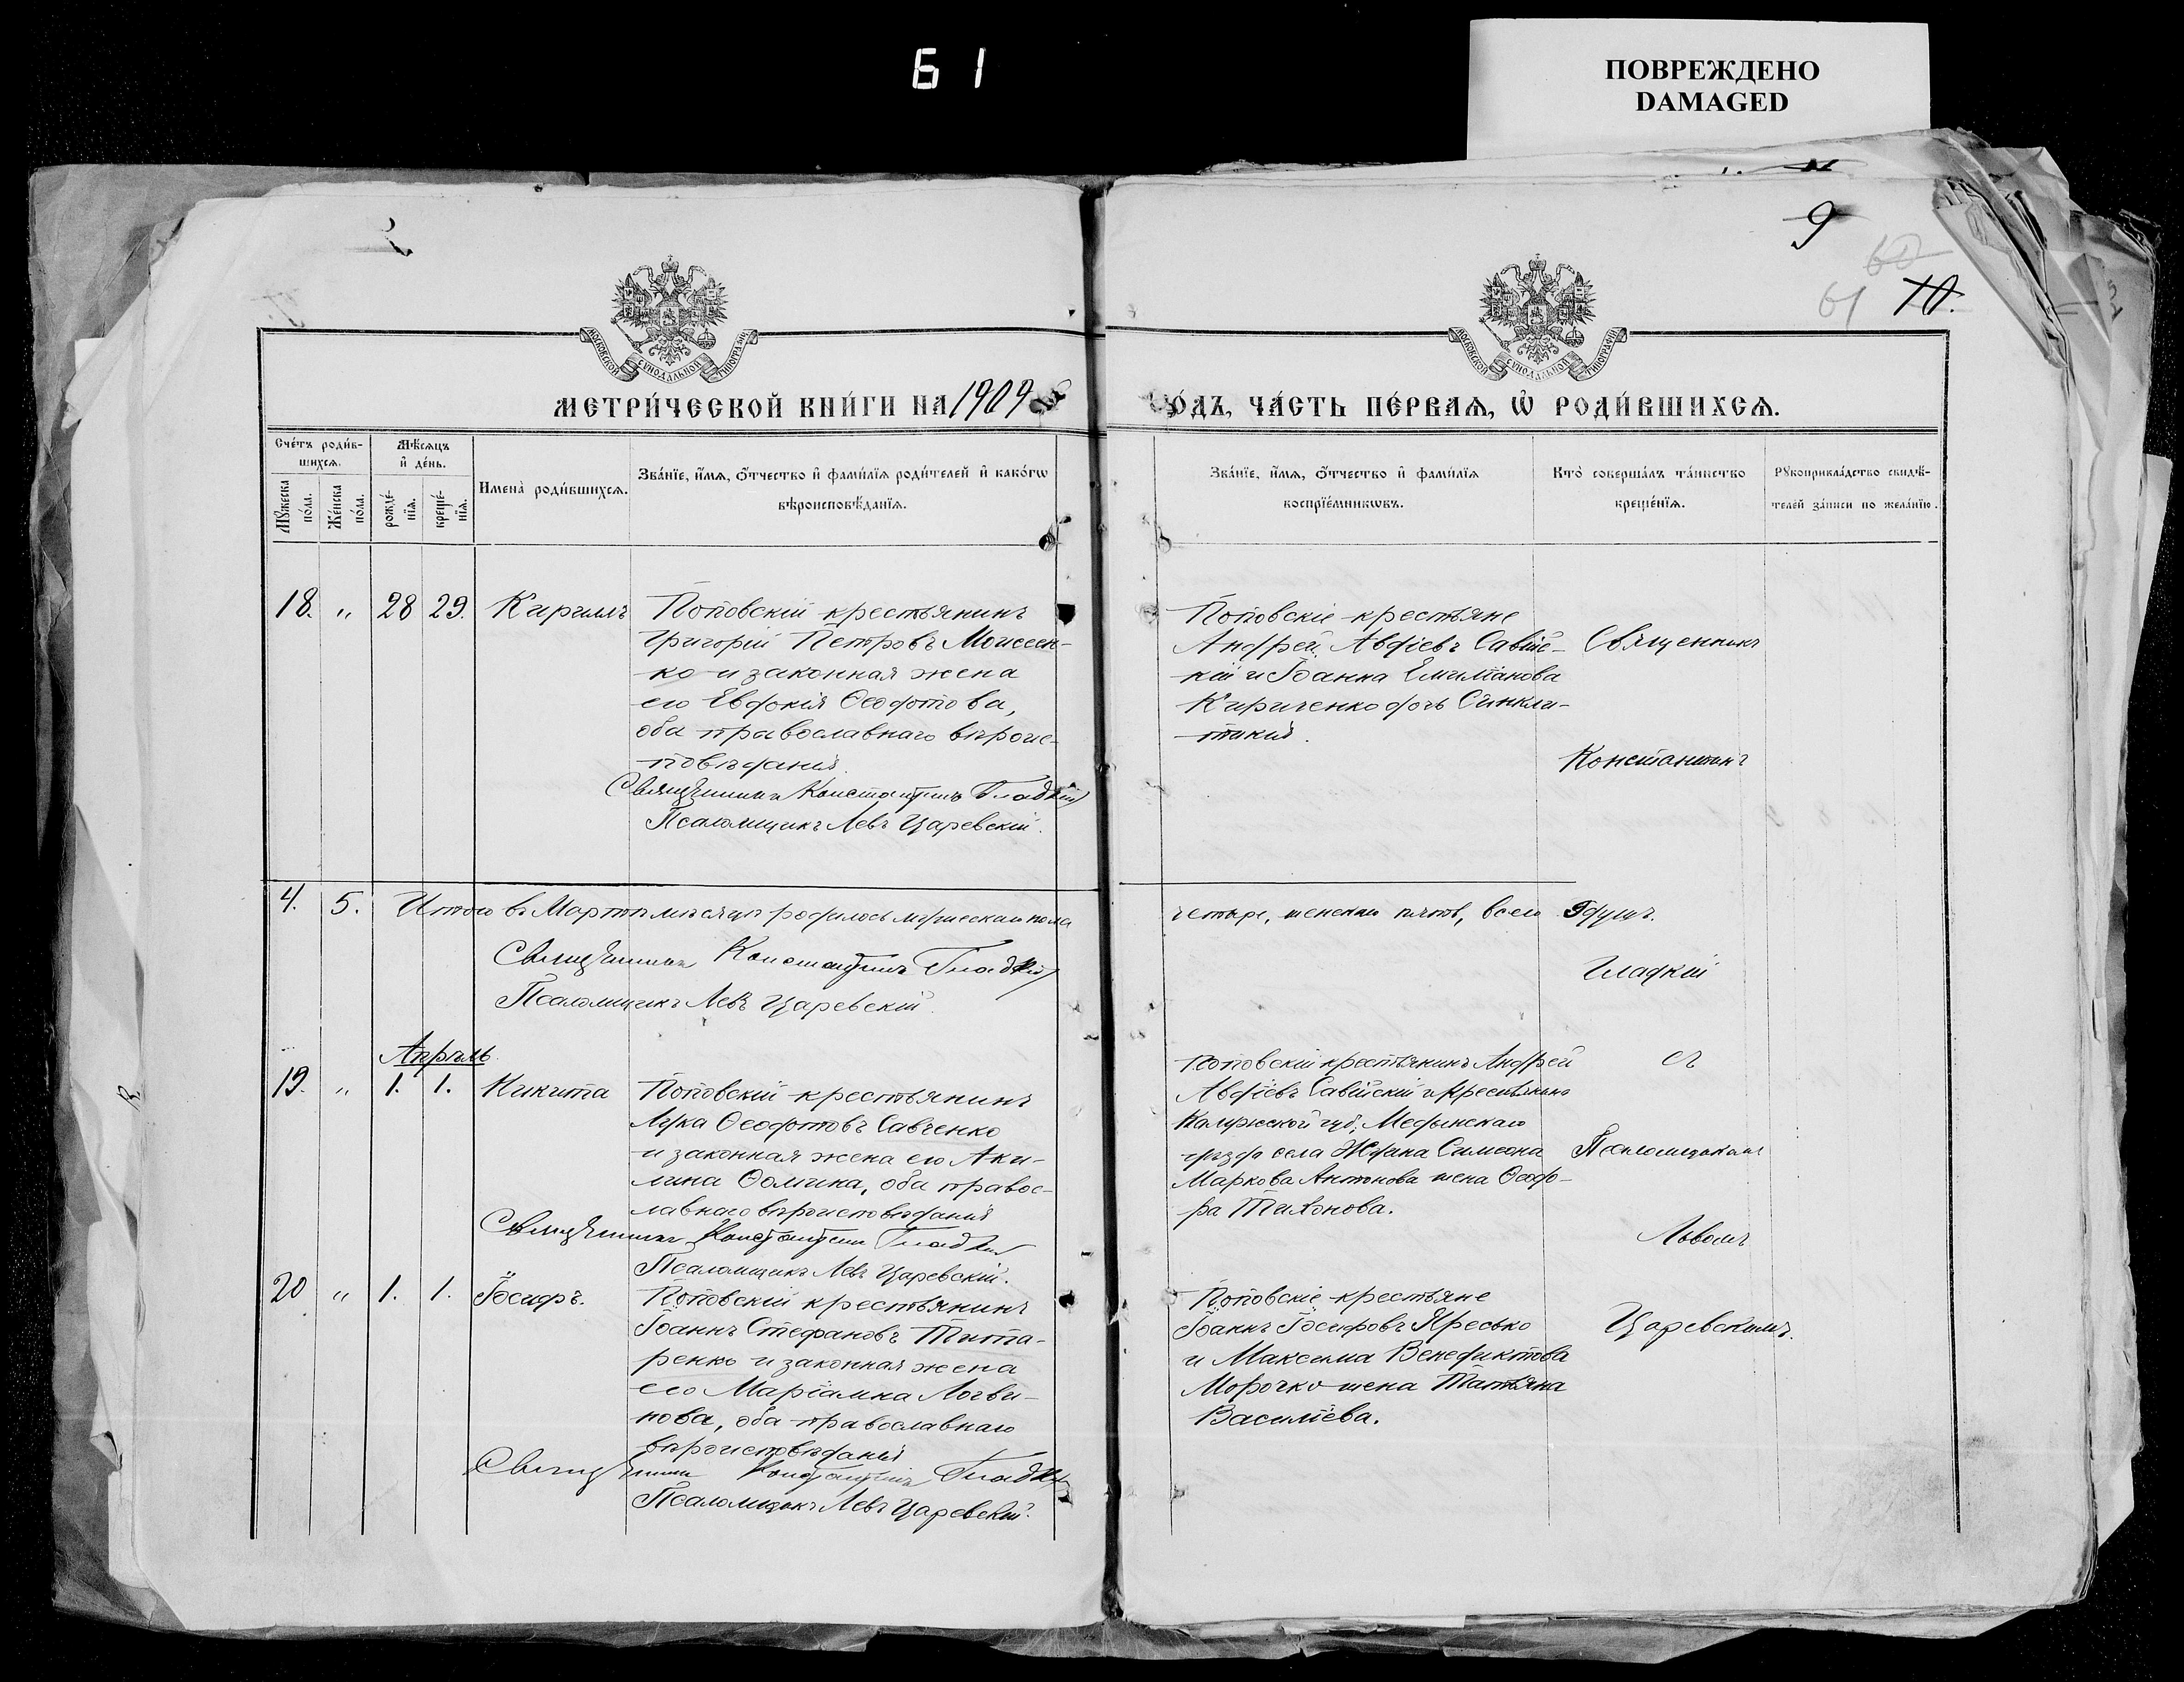 61
ПОВРЕЖДЕНО
DAMAGED
9
60
61 10.
МОСКОВСКОЙ СѴНОДАЛЬНОЙ ТИПОГРАФІИ
МОСКОВСКОЙ СѴНОДАЛЬНОЙ ТИПОГРАФІИ
МЕТРИ́ЧЕСКОЙ КНИ́ГИ НА 1909
О́ДЪ, ЧА́СТЬ ПЕ́РВАѦ, Ѡ҆ РОДИ́ВШИХСѦ.
Сче́тъ роди́в-
шихсѧ.
Мѣ́сѧцъ
и҆ де́нь.
Мꙋ́жеска
по́ла.
Же́нска
по́ла.
рожде́-
нїѧ.
креще́-
нїѧ.
Имена̀ роди́вшихсѧ.
Зва́нїе, и҆́мѧ, ѻ҆́тчество и҆ фами́лїѧ роди́телей и҆ како́гѡ
вѣроисповѣ́данїѧ.
Зва́нїе, и҆́мѧ, ѻ҆́тчество и҆ фами́лїѧ
воспрїе́мникѡвъ.
Кто̀ соверша́лъ та́инство
креще́нїѧ.
Рꙋкоприкла́дство свидѣ́-
телей за́писи по жела́нїю.
18. " 28 29. Кириллъ
Поповскій крестьянинъ
Григорій Петровъ Моисеен-
ко и законная жена
его Евдокія Ѳеодотова,
оба православнаго вѣроис-
повѣданія.
Священникъ Константинъ Гладкій
Псаломщикъ Левъ Царевскій.
Поповскіе крестьяне
Андрей Авдіевъ Савій-
кій и Іоанна Емиліанова
Кириченко дочь Синкли-
тикія.
Священникъ
Константинъ
4. 5. Итого въ Мартѣ мѣсяцѣ родилось мужескаго пола
четыре, женскаго пять, всего 9 душъ.
Священникъ Константинъ Гладкій
Псаломщикъ Левъ Царевскій.
Гладкій
Апрѣль.
19. " 1. 1. Никита
Поповскій крестьянинъ
Лука Ѳеодотовъ Савченко
и законная жена его Аки-
лина Ѳомина, оба правос-
лавнаго вѣроисповѣданія
Священникъ Константинъ Гладкій
Псаломщикъ Левъ Царевскій.
Поповскій крестьянинъ Андрей
Авдіевъ Савійскій и крестьянина
Калужской губ, Медынскаго
уѣзда села Ждана Симеона
Маркова Антонова жена Ѳеодо-
ра Тихонова.
съ
Псаломщикомъ
Львомъ
20 " 1. 1. Іосифъ.
Поповскій крестьянинъ
Іоаннъ Стефановъ Тита-
ренко и законная жена
его Маріамна Логви-
нова, оба православнаго
вѣроисповѣданія
Священникъ Константинъ Гладкій
Псаломщикъ Левъ Царевскій.
Поповскіе крестьяне
Іоаннъ Іосифовъ Яресько
и Максима Венедиктова
Морочко жена Татьяна
Василіева.
Царевскимъ.